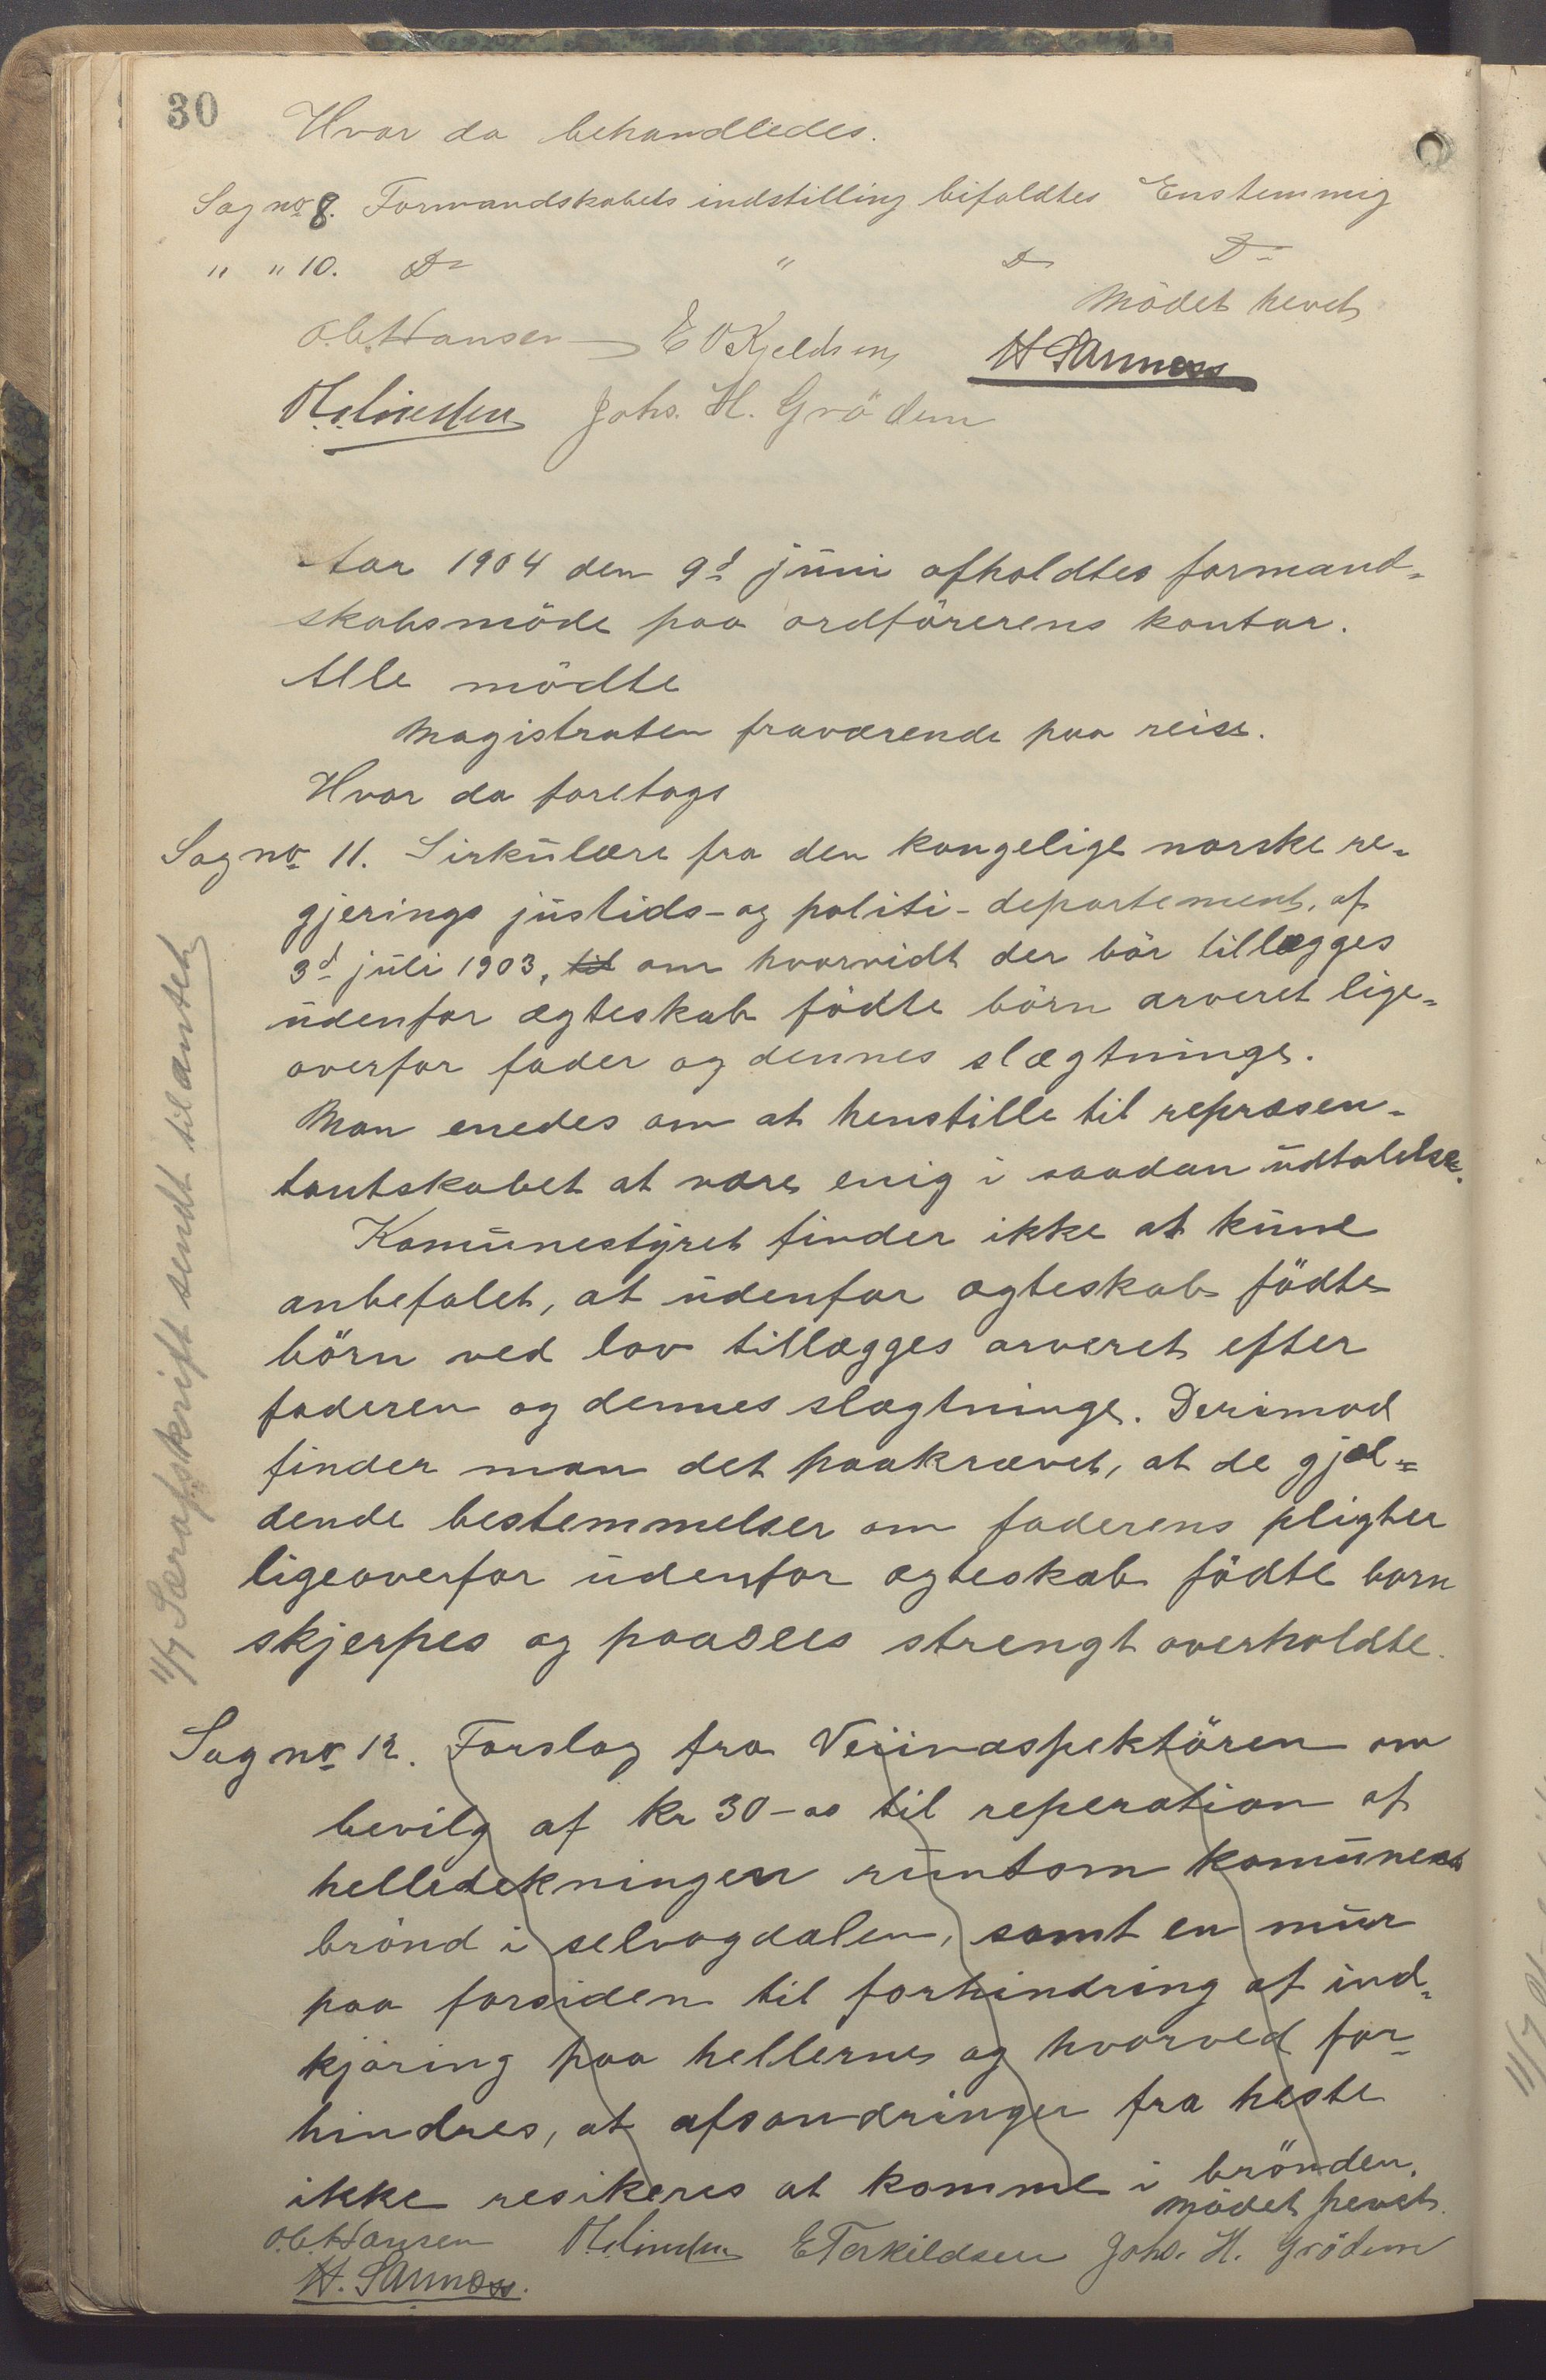 30
Hvor da behandledes.
Sag no 8. Formandskabets indstilling bifaldtes Enstemmig
" " 10. Do " Do Do
Mödet hevet
O. C. Hansen E O Kjeldsen
Johs. H. Grödem
Aar 1904 den 9d juni afholdtes formand-
skabsmöde paa ordförerens kontor.
Alle mödte
Magistraten fraværende paa reise.
Hvor da foretogs
Sag no 11. Sirkulære fra den kongelige norske re-
gjerings justids- og politi-departement, af
3d juli 1903, til om hvorvidt der bör tillægges
udenfor ægteskab födte börn arveret lige-
overfor fader og dennes slægtninge.
Man enedes om at henstille til repræsen-
tantskabet at være enig i saadan udtalelse.
Komunestyret finder ikke at kune
anbefalet, at udenfor ægteskab födte
börn ved lov tillægges arveret efter
faderen og dennes slægtninge. Derimod
finder man det paakrævet, at de gjæl-
dende bestemmelser om faderens pligter
ligeoverfor udenfor ægteskab födte born
skjerpes og paasees strengt overholdte.
11/7 Særafskrift sendt til amtet
Sag no 12. Forslag fra Veiinspektören om
bevilg af kr 30-00 til reperation af
helledekningen runtom komunens
brönd i selvagdalen, samt en mur
paa forsiden til forhindring af ind-
kjöring paa hellerne og hvorved for-
hindres, at afsondringer fra heste
ikke resikeres at komme i brönden.
Mödet hevet.
O. C. Hansen E Terkildsen Johs. H. Grödem